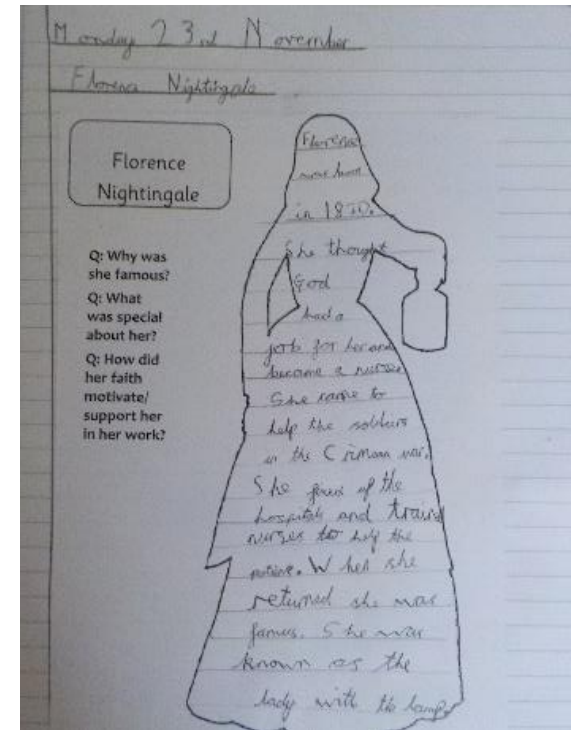 Monday 23rd November
Florence Nightingale
Florence
Nightingale
Q: Why was
she famous?
Q: What
was special
about her?
Q: How did
her faith
motivate/
support her
in her work?
Florence
was born
in 1820.
She thought
God
had a
job for her and
became a nurse.
She came to
help the soldiers
in the Crimean war.
She of the
hospitals and traind
nurses to help the
When she
returned she was
famus. She was
known as the
lady with the lamp